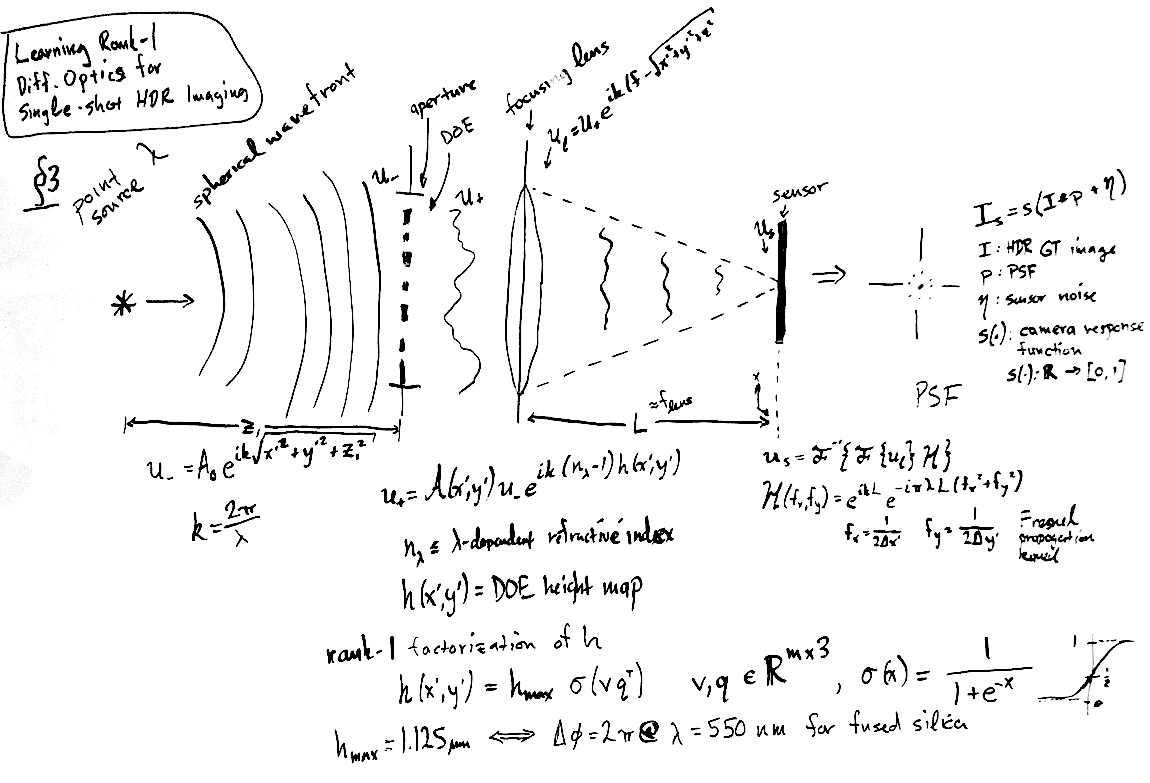 Learning Rank-1
Diff. Optics for
Single-shot HDR Imaging
§3
point
source
λ
spherical wavefront
u₋
aperture
DOE
u₊
focusing lens
u_ℓ = u₊ e^{ik(f - √(x'² + y'² + z²))}
sensor
u_s
PSF
I_s = s(I * p + η)
I : HDR GT image
p : PSF
η : sensor noise
s(·) : camera response
function
s(·): ℝ → [0,1]
z₁
L ≈ f_lens
x
u₋ = A₀ e^{ik√(x'² + y'² + z₁²)}
k = 2π/λ
u₊ = A(x',y') u₋ e^{ik(n_λ-1)h(x',y')}
n_λ ≤ λ-dependent refractive index
h(x',y') = DOE height map
u_s = F⁻¹{F{u_ℓ} H}
H(f_x,f_y) = e^{ikL} e^{-iπλL(f_x²+f_y²)}
f_x = 1/(2Δx') f_y = 1/(2Δy')
Fresnel
propagation
kernel
rank-1 factorization of h
h(x',y') = h_max σ(vqᵀ) v,q ∈ ℝ^{m×3}, σ(x) = 1/(1+e^{-x})
1
1/2
0
h_max = 1.125 μm ⟺ Δφ = 2π @ λ = 550 nm for fused silica